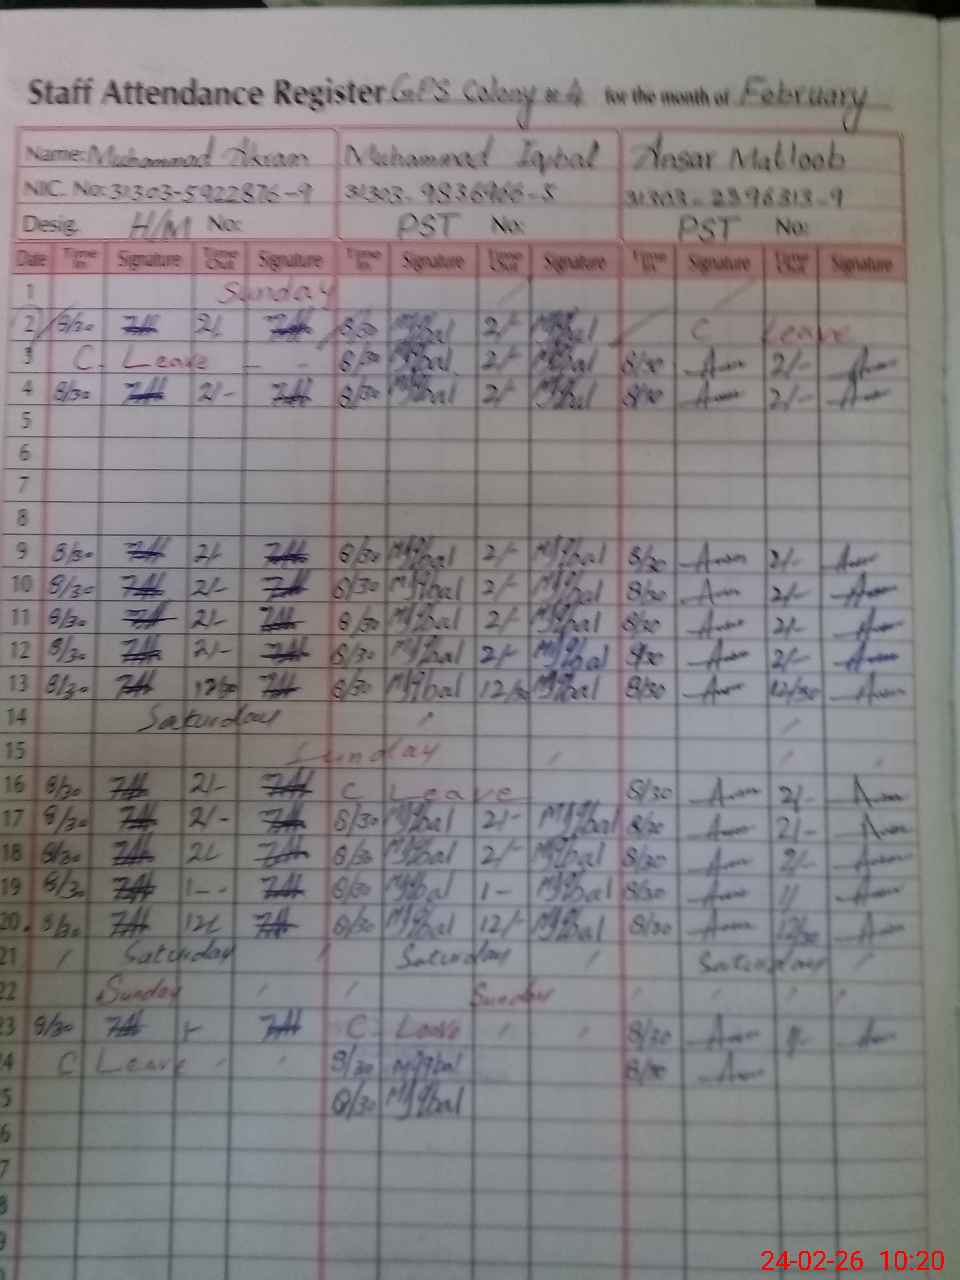 Staff Attendance Register GPS Colony # 4 for the month of February
Name: Muhammad Akram Muhammad Iqbal Ansar Matloob
NIC. No: 31303-5922876-9 31303-9836966-5 31303-2396313-9
Desig. H/M No: PST No: PST No:
Date Time In Signature Time Out Signature Time In Signature Time Out Signature Time In Signature Time Out Signature
1 Sunday
2 8/30 2/- 8/30 M Iqbal 2/- M Iqbal C Leave
3 C. Leave - - 8/30 M Iqbal 2/- M Iqbal 8/30 2/-
4 8/30 2/- 8/30 M Iqbal 2/- M Iqbal 8/30 2/-
5
6
7
8
9 8/30 2/- 8/30 M Iqbal 2/- M Iqbal 8/30 2/-
10 8/30 2/- 8/30 M Iqbal 2/- M Iqbal 8/30 2/-
11 8/30 2/- 8/30 M Iqbal 2/- M Iqbal 8/30 2/-
12 8/30 2/- 8/30 M Iqbal 2/- M Iqbal 8/30 2/-
13 8/30 12/30 8/30 M Iqbal 12/30 M Iqbal 8/30 12/30
14 Saturday
15 Sunday
16 8/30 2/- C Leave 8/30 2/-
17 8/30 2/- 8/30 M Iqbal 2/- M Iqbal 8/30 2/-
18 8/30 2/- 8/30 M Iqbal 2/- M Iqbal 8/30 2/-
19 8/30 1-- 8/30 M Iqbal 1- M Iqbal 8/30
20 8/30 8/30 M Iqbal 12/- M Iqbal 8/30 12/30
21 Saturday Saturday Saturday
22 Sunday Sunday
23 8/30 C Leave 8/30
4 C Leave 8/30 M Iqbal 8/30
5 8/30 M Iqbal
6
7
8
9
24-02-26 10:20